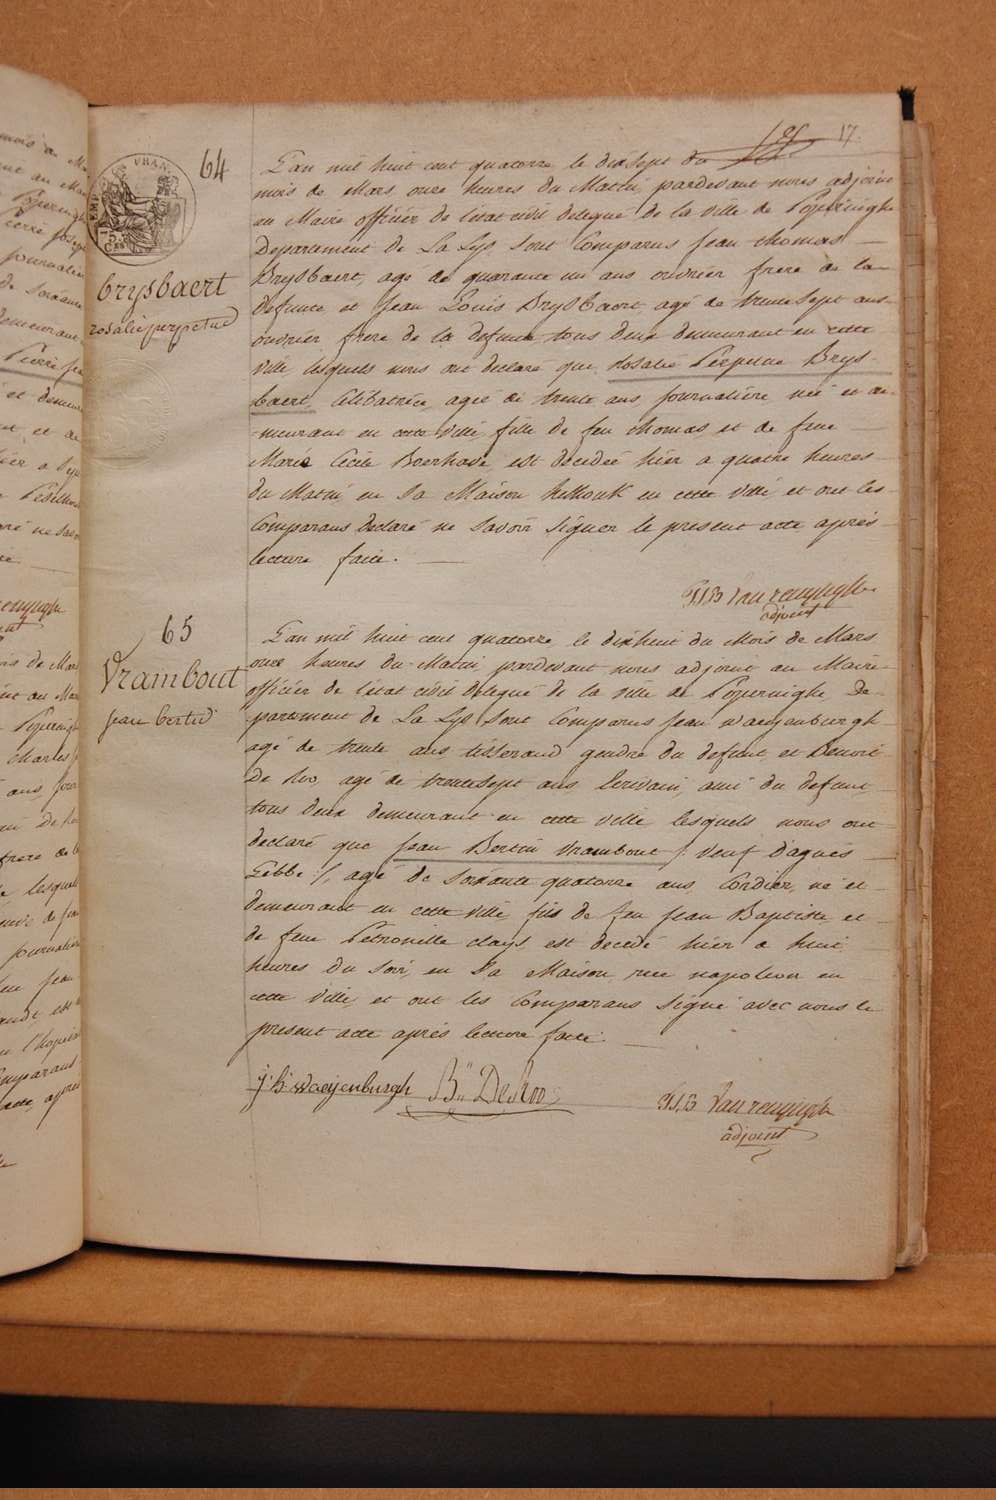 17.
64
brysbaert
rosalie perpetue
L'an mil huit cent quatorze le dixsept du
mois de Mars onze heures du Matin pardevant nous adjoint
au Maire officier de l'état civil delegué de la ville de Poperinghe
Departement de La Lys sont Comparus Jean thomas
Brysbaert, agé de quarante un ans ouvrier frere de la
defunte et Jean Louis Brysbaert agé de trente sept ans
ouvrier frere de la defunte tous deux demeurant en cette
ville lesquels nous ont declaré que Rosalie Perpetue Brys-
baert, Célibatrice, agée de trente ans journalière née et de-
-meurant en cette ville fille de feu thomas, et de feue
Marie Cécile Boerhave, est decedée hier a quatre heures
du Matin en sa Maison hellhouk en cette ville et ont les
Comparans declaré ne savoir signer le present acte après
lecture faite.
PJB Van renynghe
adjoint
65
Vrambout
jean bertin
L'an mil huit cent quatorze le dixhuit du Mois de Mars
onze heures du Matin pardevant nous adjoint au Maire
officier de l'état civil delegué de la ville de Poperinghe De-
partement de La Lys sont Comparus Jean Waeyenburgh
agé de trente ans tisserand gendre du defunt, et Benoit
De Roo, agé de trentesept ans Ecrivain, ami du defunt
tous deux demeurant en cette ville lesquels nous ont
declaré que Jean Bertin Vrambout /: veuf d'agnés
Lebbe :/, agé de soixante quatorze ans, Cordier, né et
demeurant en cette ville fils de feu Jean Baptiste et
de feue Petronille clays, est decedé hier a huit
heures du soir, en sa Maison, rue napoleon en
cette ville et ont les Comparans signé avec nous le
present acte après lecture faite.
j: b: waeyenburgh B'' De Roo
PJB Van renynghe
adjoint